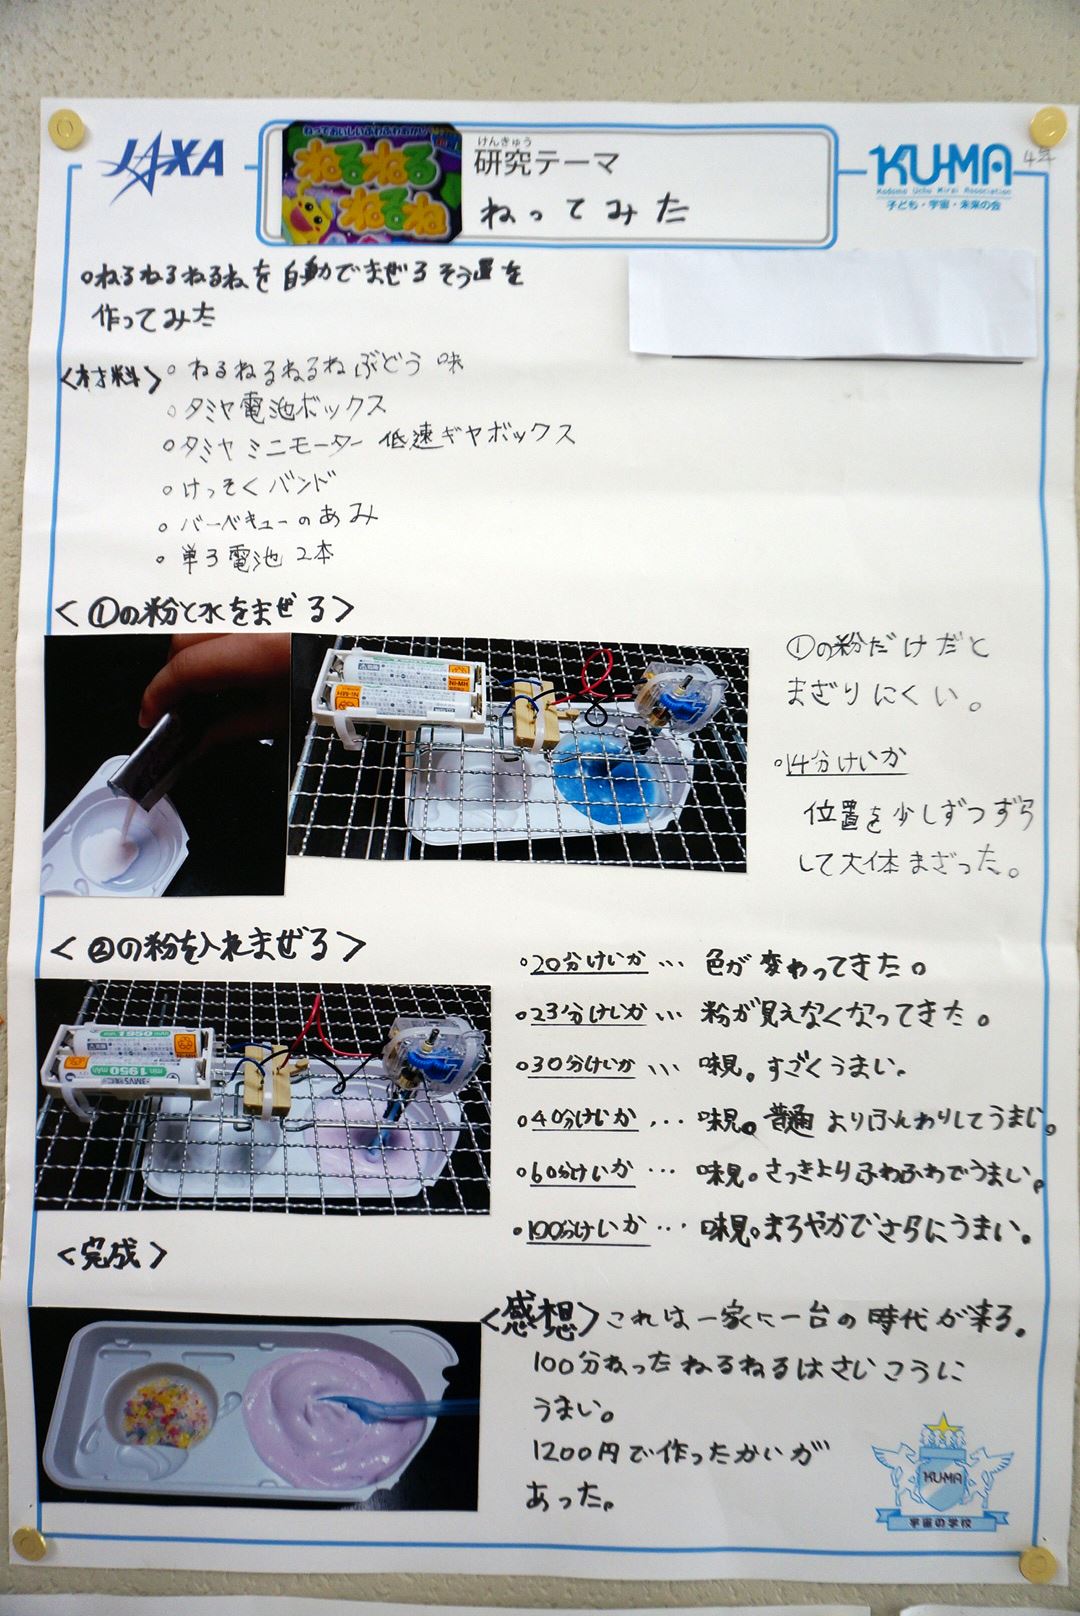 JAXA
ねっておいしいふわふわおかし
ねるねる
ねるね
けんきゅう
研究テーマ
ねってみた
KU-MA
Kodomo Uchu Mirai Association
子ども・宇宙・未来の会
4年
○ねるねるねるねを自動でまぜるそう置を
作ってみた
<材料>○ねるねるねるねぶどう味
○タミヤ電池ボックス
○タミヤ ミニモーター 低速ギヤボックス
○けっそくバンド
○バーベキューのあみ
○単3電池2本
<①の粉と水をまぜる>
①の粉だけだと
まざりにくい。
○14分けいか
位置を少しずつずら
して大体まざった。
<②の粉を入れまぜる>
○20分けいか…色が変わってきた。
○23分けいか…粉が見えなくなってきた。
○30分けいか…味見。すごくうまい。
○40分けいか…味見。普通よりふんわりしてうまい。
○60分けいか…味見。さっきよりふわふわでうまい。
○100分けいか…味見。まろやかでさらにうまい。
min.1950mAh
<完成>
<感想>これは一家に一台の時代が来る。
100分ねったねるねるはさいこうに
うまい。
1200円で作ったかいが
あった。
KU-MA
宇宙の学校